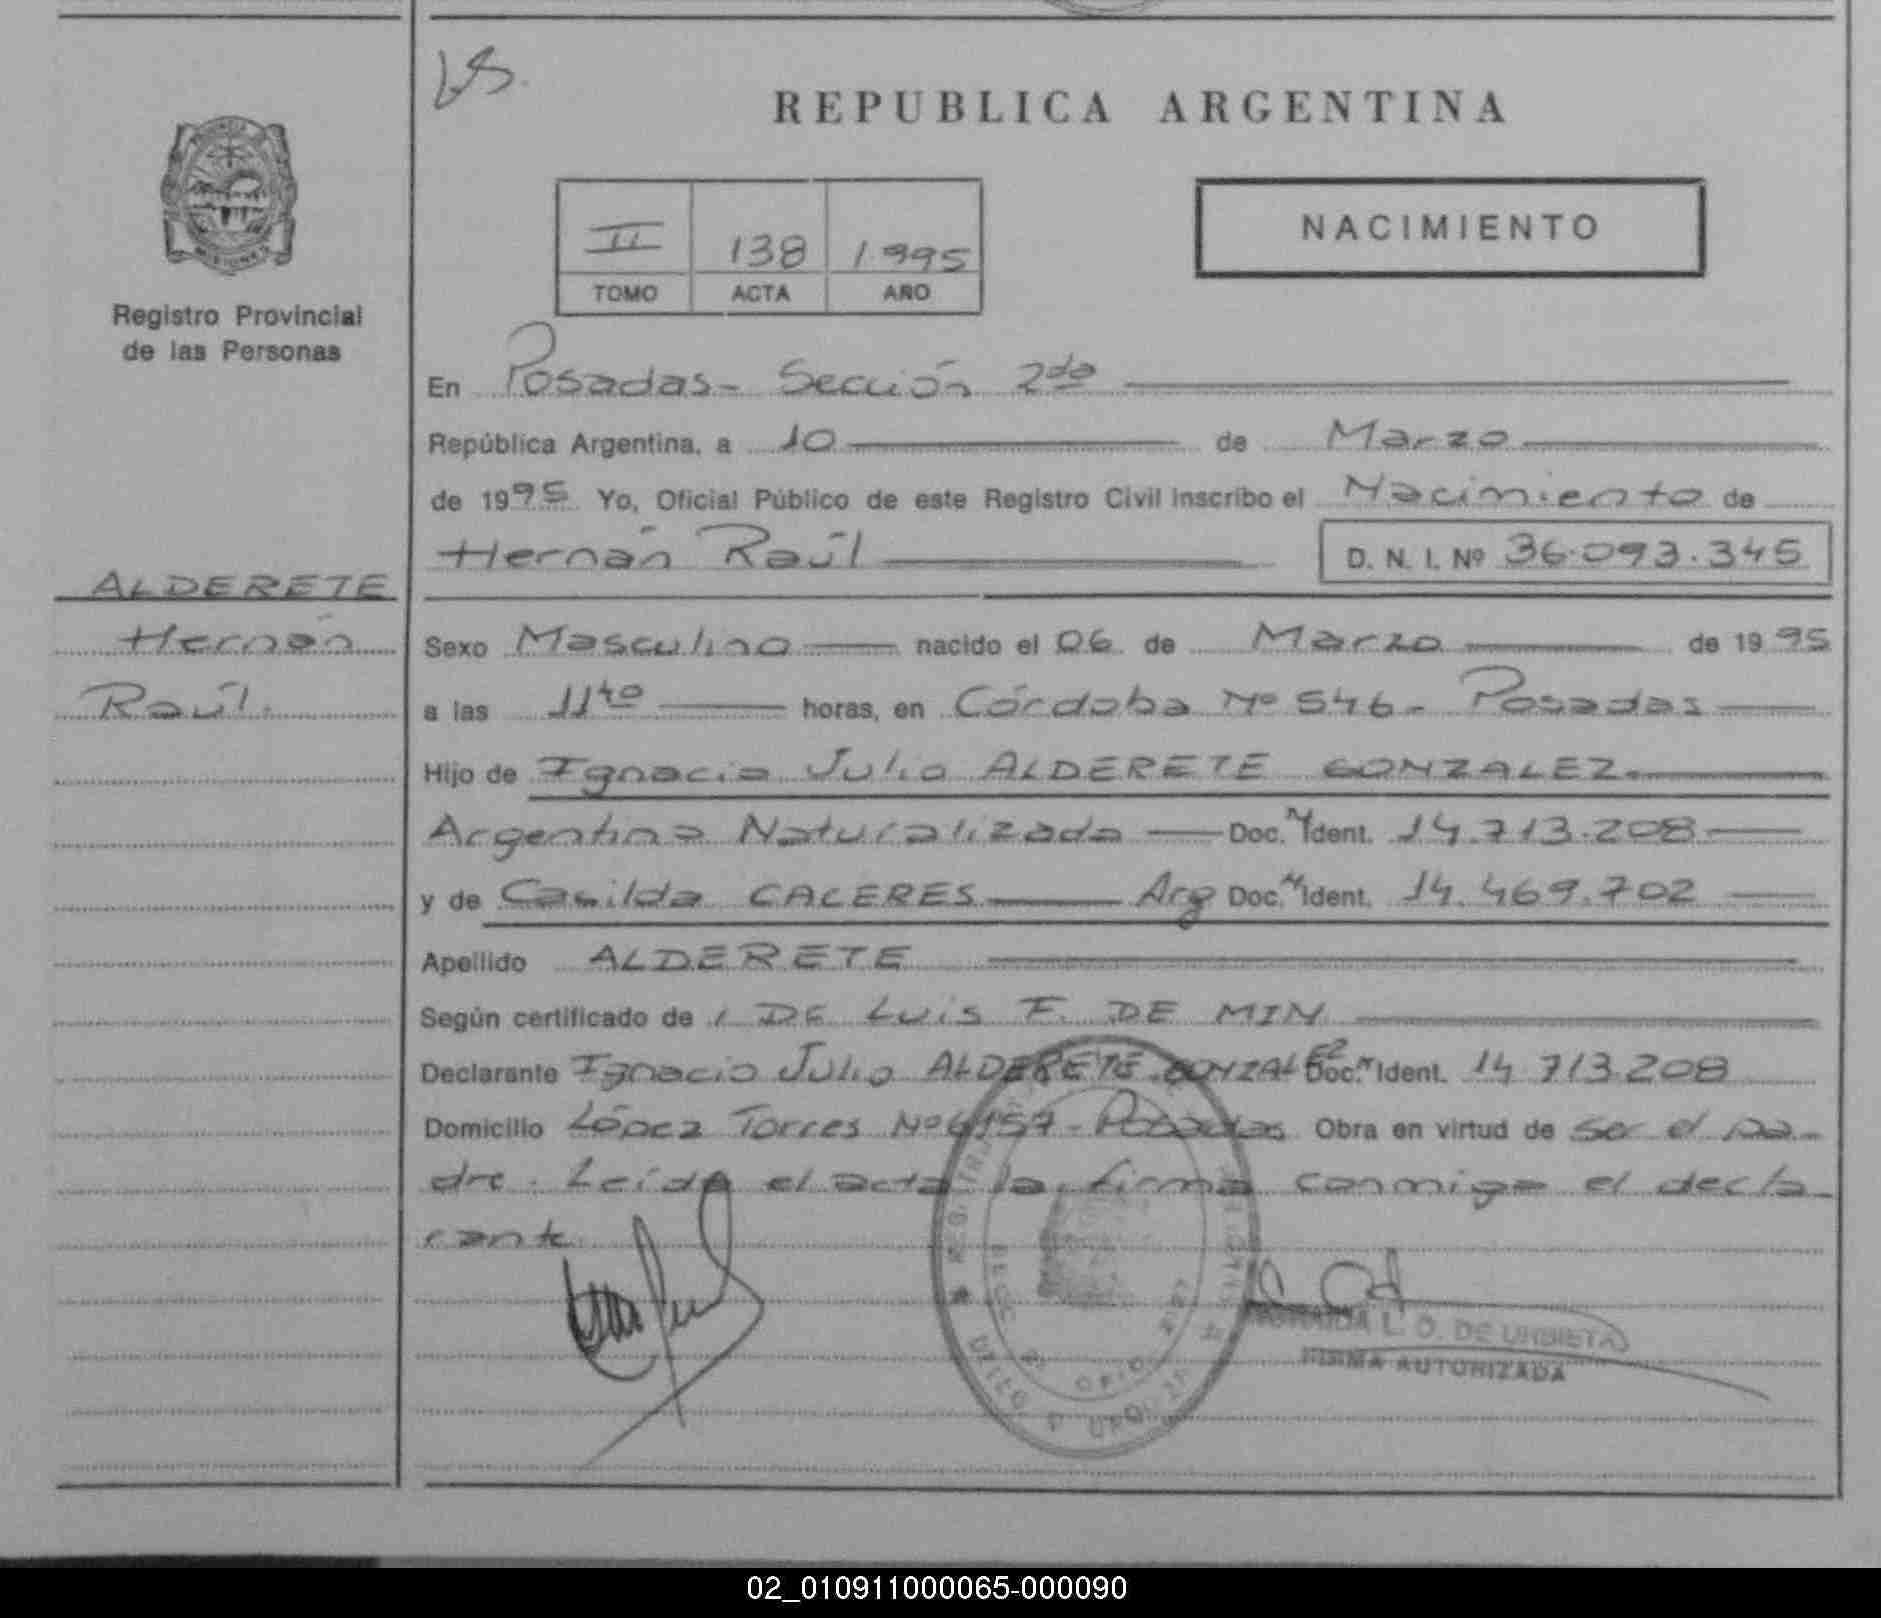 LS.
REPUBLICA ARGENTINA
NACIMIENTO
II 138 1995
TOMO ACTA AÑO
Registro Provincial
de las Personas
MISIONES
En Posadas - Sección 2da
República Argentina, a 10 de Marzo
de 1995 Yo, Oficial Público de este Registro Civil inscribo el Nacimiento de
Hernán Raúl D. N. I. Nº 36.093.345
ALDERETE
Hernán
Raúl.
Sexo Masculino nacido el 06 de Marzo de 1995
a las 11 40 horas, en Córdoba Nº 546 - Posadas
Hijo de Ignacio Julio ALDERETE GONZALEZ.
Argentina Naturalizada Doc. N Ident. 14.713.208
y de Casilda CACERES Arg Doc. N Ident. 14.469.702
Apellido ALDERETE
Según certificado de / DE Luis F. DE MIN
Declarante Ignacio Julio ALDERETE GONZALEZ Doc. N Ident. 14 713.208
Domicilio López Torres Nº 6157 - Posadas Obra en virtud de ser el pa-
dre. Leída el acta la firma conmigo el decla-
rante.
L. O. DE URBIETA
FIRMA AUTORIZADA
02_010911000065-000090